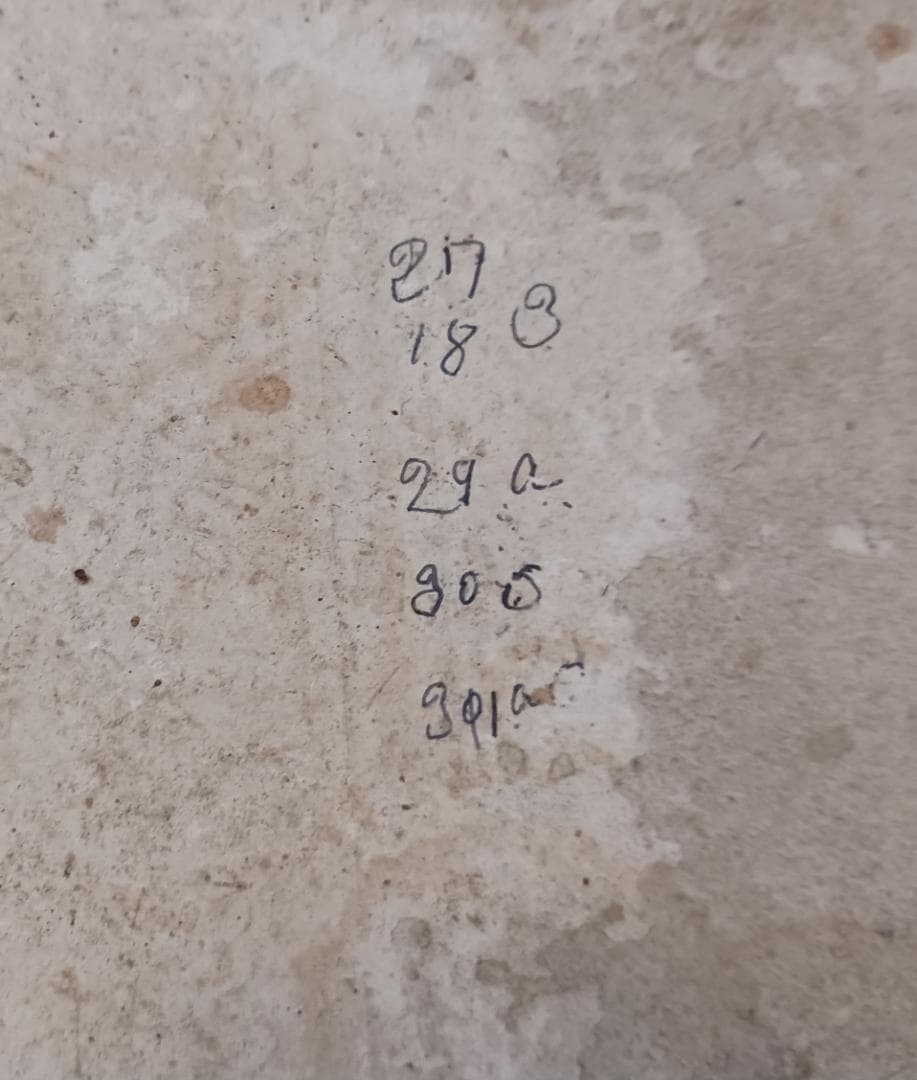 27
18 3
29 a
305
301a